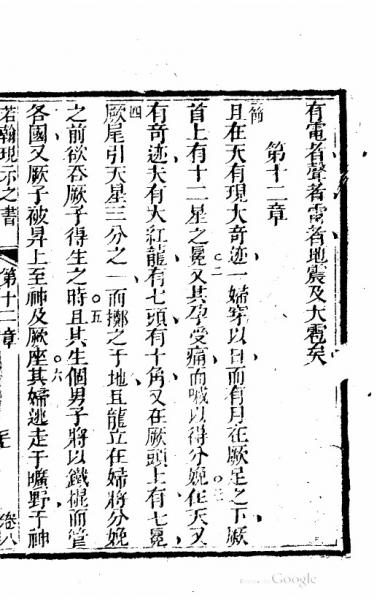 有電者聲者雷者地震及大雹矣
第十二章
節
且在天有現大奇迹一婦穿以日而有月在厥足之下厥
二
首上有十二星之冕又其孕受痛而喊以得分娩在天又
三
有奇迹夫有大紅龍有七頭有十角又在厥頭上有七冕
四
厥尾引天星三分之一而擲之于地且龍立在婦將分娩
五
之前欲吞厥子得生之時且其生個男子將以鐵棍而管
各國又厥子被昇上至神及厥座其婦逃走于曠野于神
六
若翰現示之書
第十二章
卷八
Google